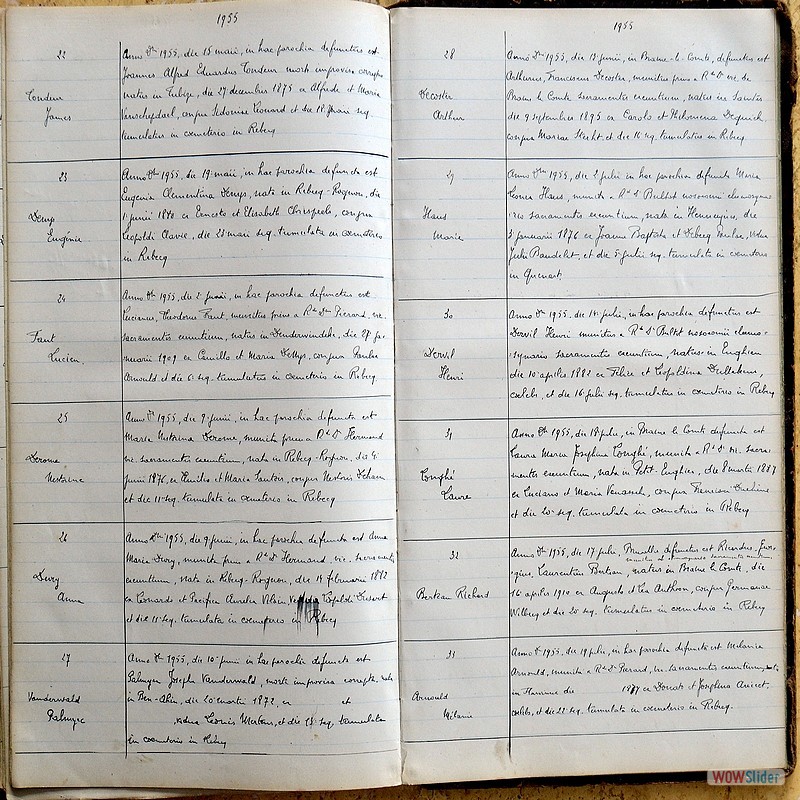 1955
22
Tondeur
James
Anno Dni 1955, die 15 maii, in hac parochia defunctus est
Joannes Alfred Eduardus Tondeur morte improvisa correptus
natus in Tubize, die 27 decembris 1875 ex Alfredo et Maria
conjux Sidoniae Léonard et die 18 maii seq.
tumulatus in coemeterio in Rebecq
23
Demps
Eugénie
Anno Dni 1955, die 19 maii, in hac parochia defuncta est
Eugenia Clementina Demps, nata in Rebecq-Rognon, die
1 junii 1870 ex Ernesto et Elisabeth conjux
Leopoldi Clavie, die 23 maii seq. tumulata in coemeterio
in Rebecq
24
Faut
Lucien
Anno Dni 1955, die 2 junii, in hac parochia defunctus est
Lucianus, Theodorus Faut, munitus prius a Rdo Dno Pierard, vic.
sacramentis exeuntium, natus in Denderwindeke, die 27 ja-
nuarii 1909 ex Camillo et Maria conjux Paulae
Arnould et die 6 seq. tumulatus in coemeterio in Rebecq
25
Derome
Nestorine
Anno Dni 1955, die 9 junii, in hac parochia defuncta est
Maria Nestorina Derome, munita prius a Rdo D. Hermand
vic. sacramentis exeuntium, nata in Rebecq-Rognon, die 4
junii 1876 ex Emilio et Maria Sautois, conjux Nestoris
et die 11 seq. tumulata in coemeterio in Rebecq
26
Devry
Anna
Anno Dni 1955, die 9 junii, in hac parochia defuncta est Anna
Maria Devry, munita prius a Rdo D. Hermand, vic. sacramentis
exeuntium, nata in Rebecq-Rognon, die 14 februarii 1872
ex Leonardo et Pacifica Amelia Vidua Leopoldi
et die 11 seq. tumulata in coemeterio in Rebecq
27
Vanderwald
Palmyre
Anno Dni 1955, die 10 junii in hac parochia defuncta est
Palmyra Josepha Vanderwald, morte improvisa correpta, nata
in Ben-Ahin, die 20 martii 1872, ex et
vidua Leonis Mertens, et die 13 seq. tumulata
in coemeterio in Rebecq
1955
28
Decoster
Arthur
Anno Dni 1955, die 12 junii, in Braine-le-Comte, defunctus est
Arthurus, Franciscus Decoster, munitus prius a Rdo D. vic. de
Braine le Comte sacramentis exeuntium, natus in Saintes
die 9 septembris 1895 ex Carolo et Philomena
conjux Mariae et die 16 seq. tumulatus in Rebecq
29
Haus
Marie
Anno Dni 1955, die 2 julii in hac parochia defuncta Maria
Leonia Haus, munita a Rdo D. Bultot nosocomii eleemosyna-
rio sacramentis exeuntium, nata in Hennuyères, die
3 januarii 1876 ex Joanne Baptista et Debecq vidua
Julii Baudelet, et die 5 julii seq. tumulata in coemeterio
in Quenast
30
Dervil
Henri
Anno Dni 1955, die 14 julii, in hac parochia defunctus est
Dervil Henri munitus a Rdo D. Bultot nosocomii eleemo-
synario sacramentis exeuntium, natus in Enghien
die 10 aprilis 1882 ex Felice et Leopoldina
coelebs, et die 16 julii seq. tumulatus in coemeterio in Rebecq
31
Conghé
Laure
Anno Dni 1955, die 18 julii, in Braine le Comte defuncta est
Laura Maria Josephina Conghé, munita a Rdo D. vic. sacra-
mentis exeuntium, nata in Petit-Enghien, die 8 martii 1887
ex Luciano et Maria conjux Francisci
et die 20 seq. tumulata in coemeterio in Rebecq
32
Bertrau Richard
Anno Dni 1955, die 17 julii, Bruxellis defunctus est Ricardus, Geor-
gius, Laurentius Bertrau, natus in Braine le Comte, die
16 aprilis 1910 ex Augusto et Lea conjux Germanae
et die 20 seq. tumulatus in coemeterio in Rebecq
33
Arnould
Mélanie
Anno Dni 1955, die 19 julii, in hac parochia defuncta est Melania
Arnould, munita a Rdo D. Pierard, vic. sacramentis exeuntium, nata
in die 1877 ex Donato et Josephina
coelebs, et die 22 seq. tumulata in coemeterio in Rebecq.
WOWSlider